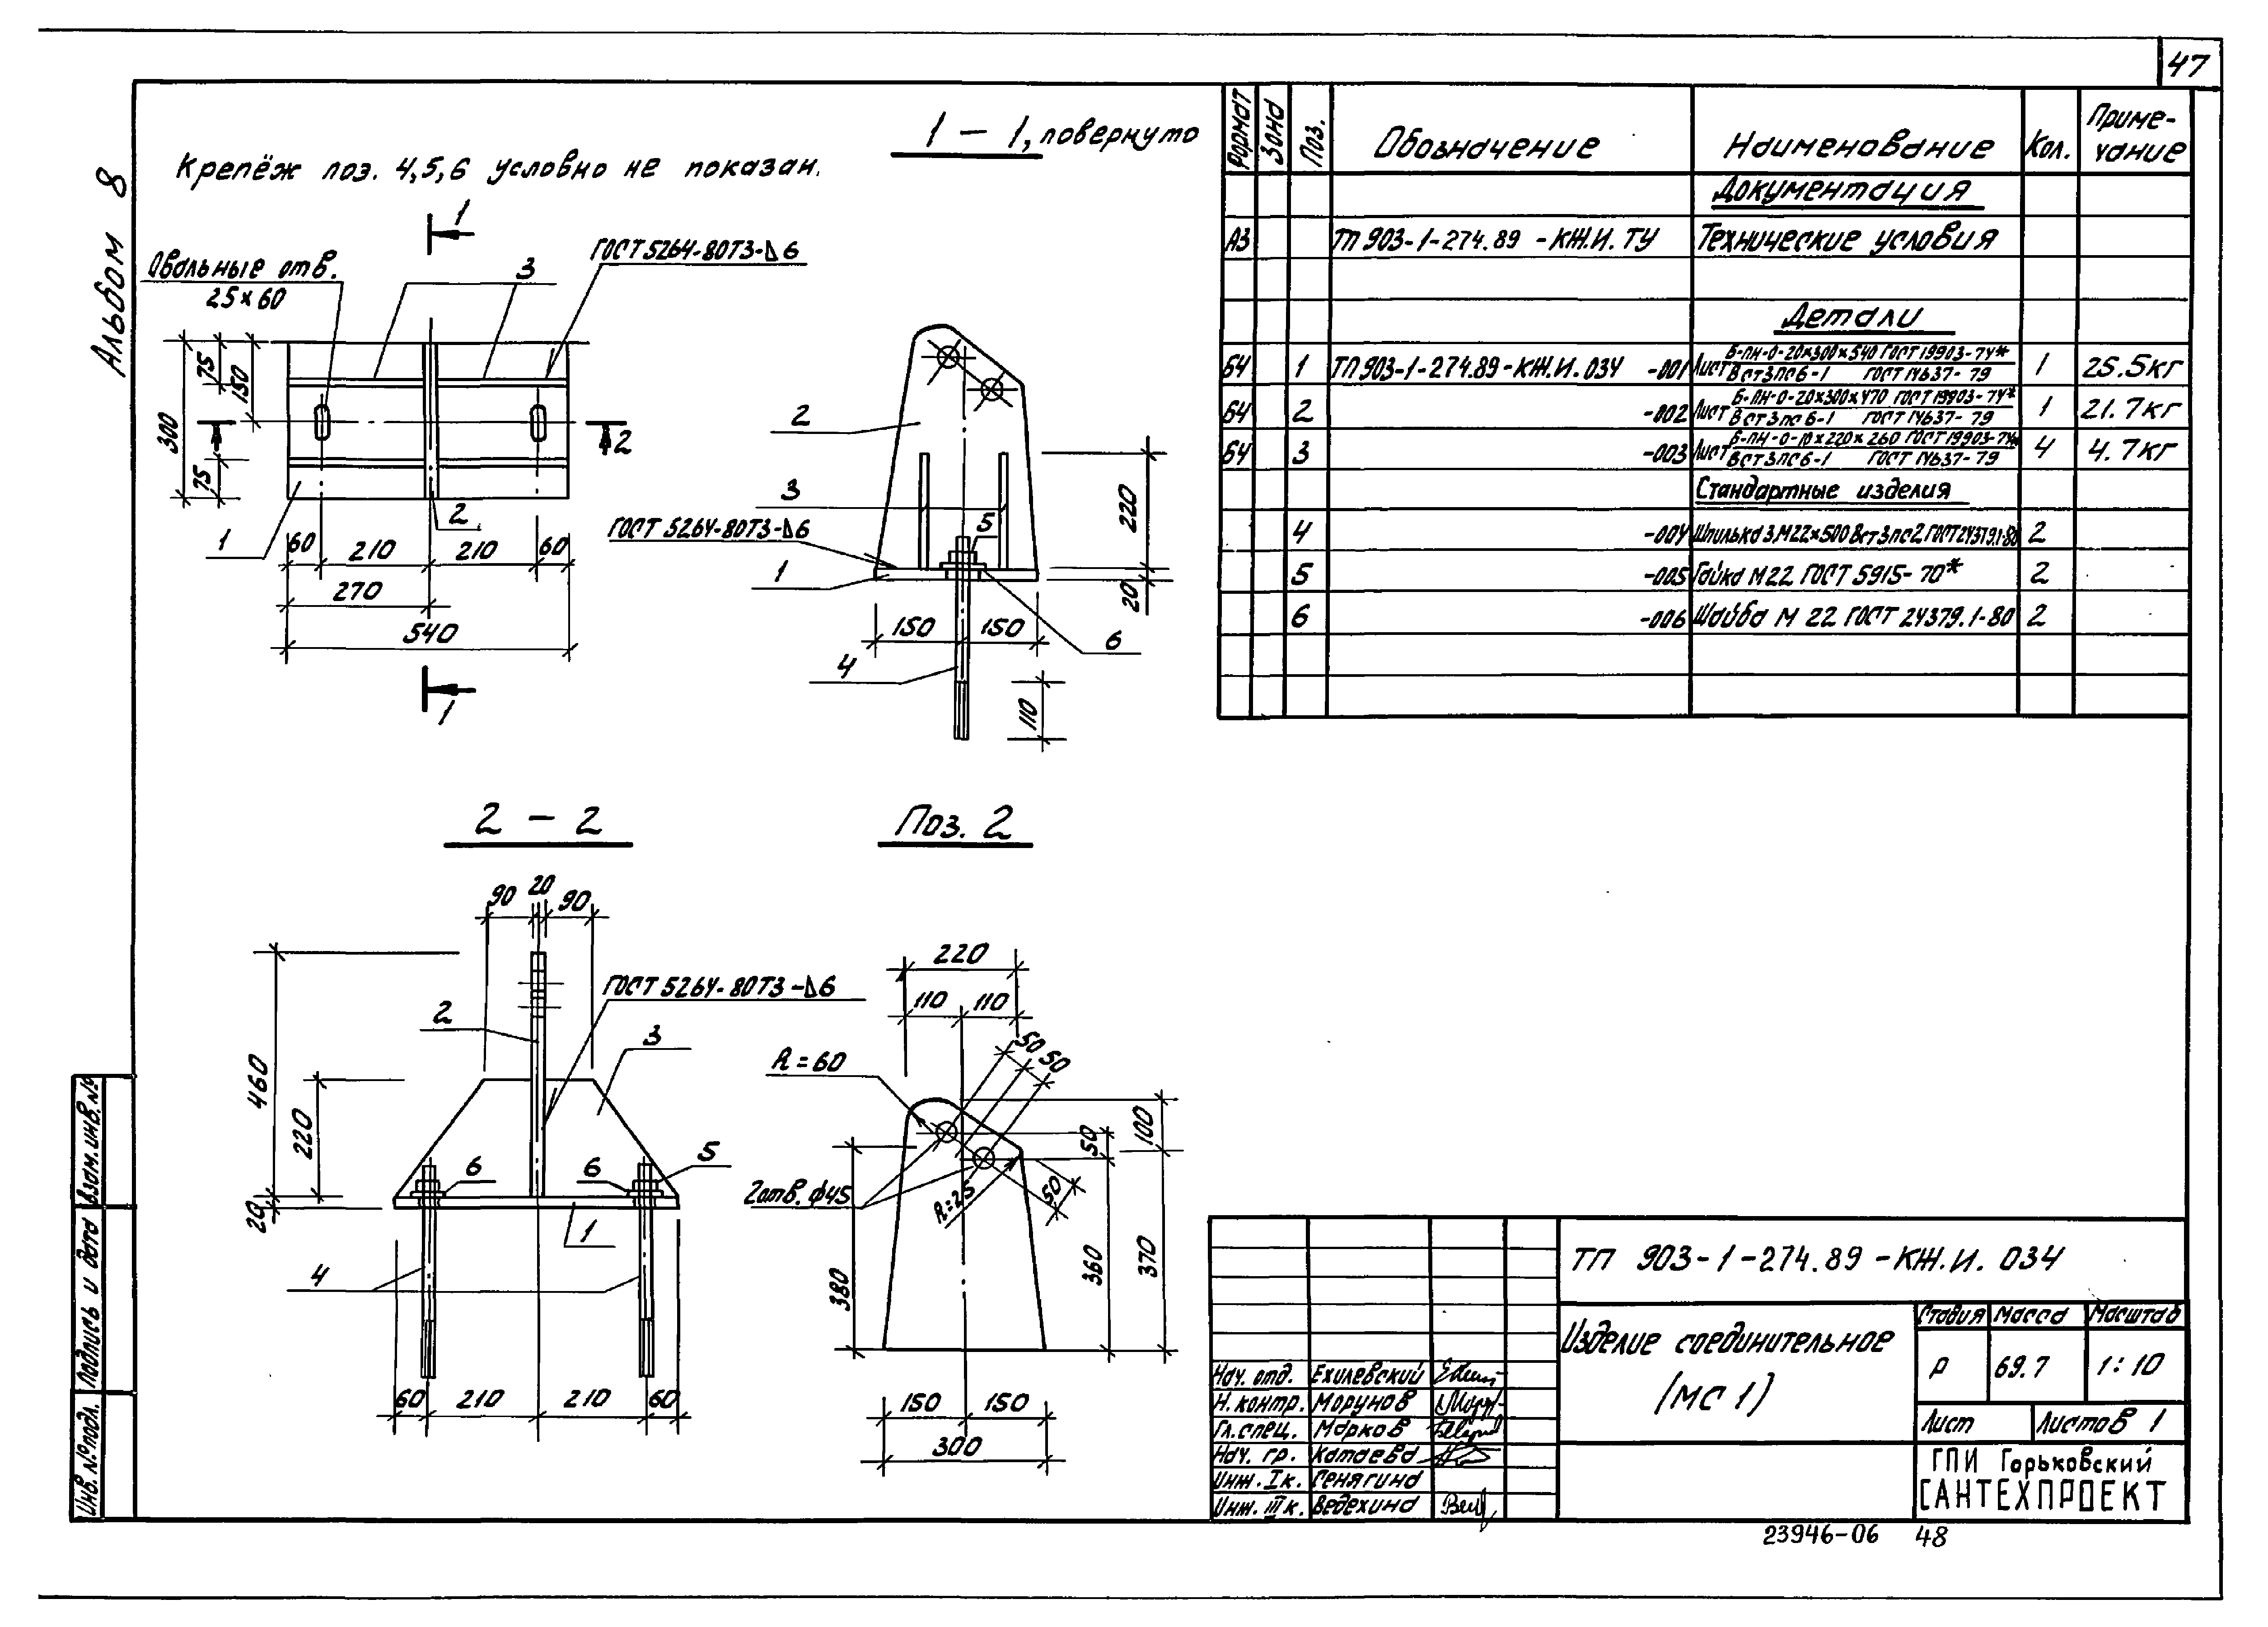 47
Альбом 8
Крепёж поз. 4,5,6 условно не показан.
1 – 1, повернуто
1
Овальные отв.
25×60
3
ГОСТ 5264-80Т3-Δ6
300
75
150
75
2
1
2
60
210
210
60
270
540
1
2
3
5
ГОСТ 5264-80Т3-Δ6
1
220
20
150
150
6
4
110
2 – 2
90
20
90
ГОСТ 5264-80Т3-Δ6
2
3
460
220
20
6
6
5
1
4
60
210
210
60
Поз. 2
220
110
110
50
50
R=60
100
50
2отв. ф45
R=25
50
380
360
370
150
150
300
Формат
Зона
Поз.
Обозначение
Наименование
Кол.
Приме-
чание
Документация
А3 ТП 903-1-274.89 -КЖ.И.ТУ Технические условия
Детали
БЧ 1 ТП 903-1-274.89-КЖ.И.034 -001 Лист Б-ПН-О-20×300×540 ГОСТ 19903-74* 1 25.5кг
ВСт3пс6-1 ГОСТ 14637-79
БЧ 2 -002 Лист Б-ПН-О-20×300×470 ГОСТ 19903-74* 1 21.7кг
ВСт3пс6-1 ГОСТ 14637-79
БЧ 3 -003 Лист Б-ПН-О-10×220×260 ГОСТ 19903-74* 4 4.7кг
ВСт3пс6-1 ГОСТ 14637-79
Стандартные изделия
4 -004 Шпилька 3.М22×500 Вст3пс2 ГОСТ 24379.1-80 2
5 -005 Гайка М22 ГОСТ 5915-70* 2
6 -006 Шайба М 22 ГОСТ 24379.1-80 2
ТП 903-1-274.89 -КЖ.И. 034
Изделие соединительное
(МС 1)
Стадия Масса Масштаб
Р 69.7 1:10
Лист Листов 1
ГПИ Горьковский
САНТЕХПРОЕКТ
Нач. отд. Ехилевский
Н.контр. Морунов
Гл.спец. Марков
Нач. гр. Катаева
Инж. Iк. Генягина
Инж. IIIк. Ведехина
Взам. инв. №
Подпись и дата
Инв. № подл.
23946-06 48